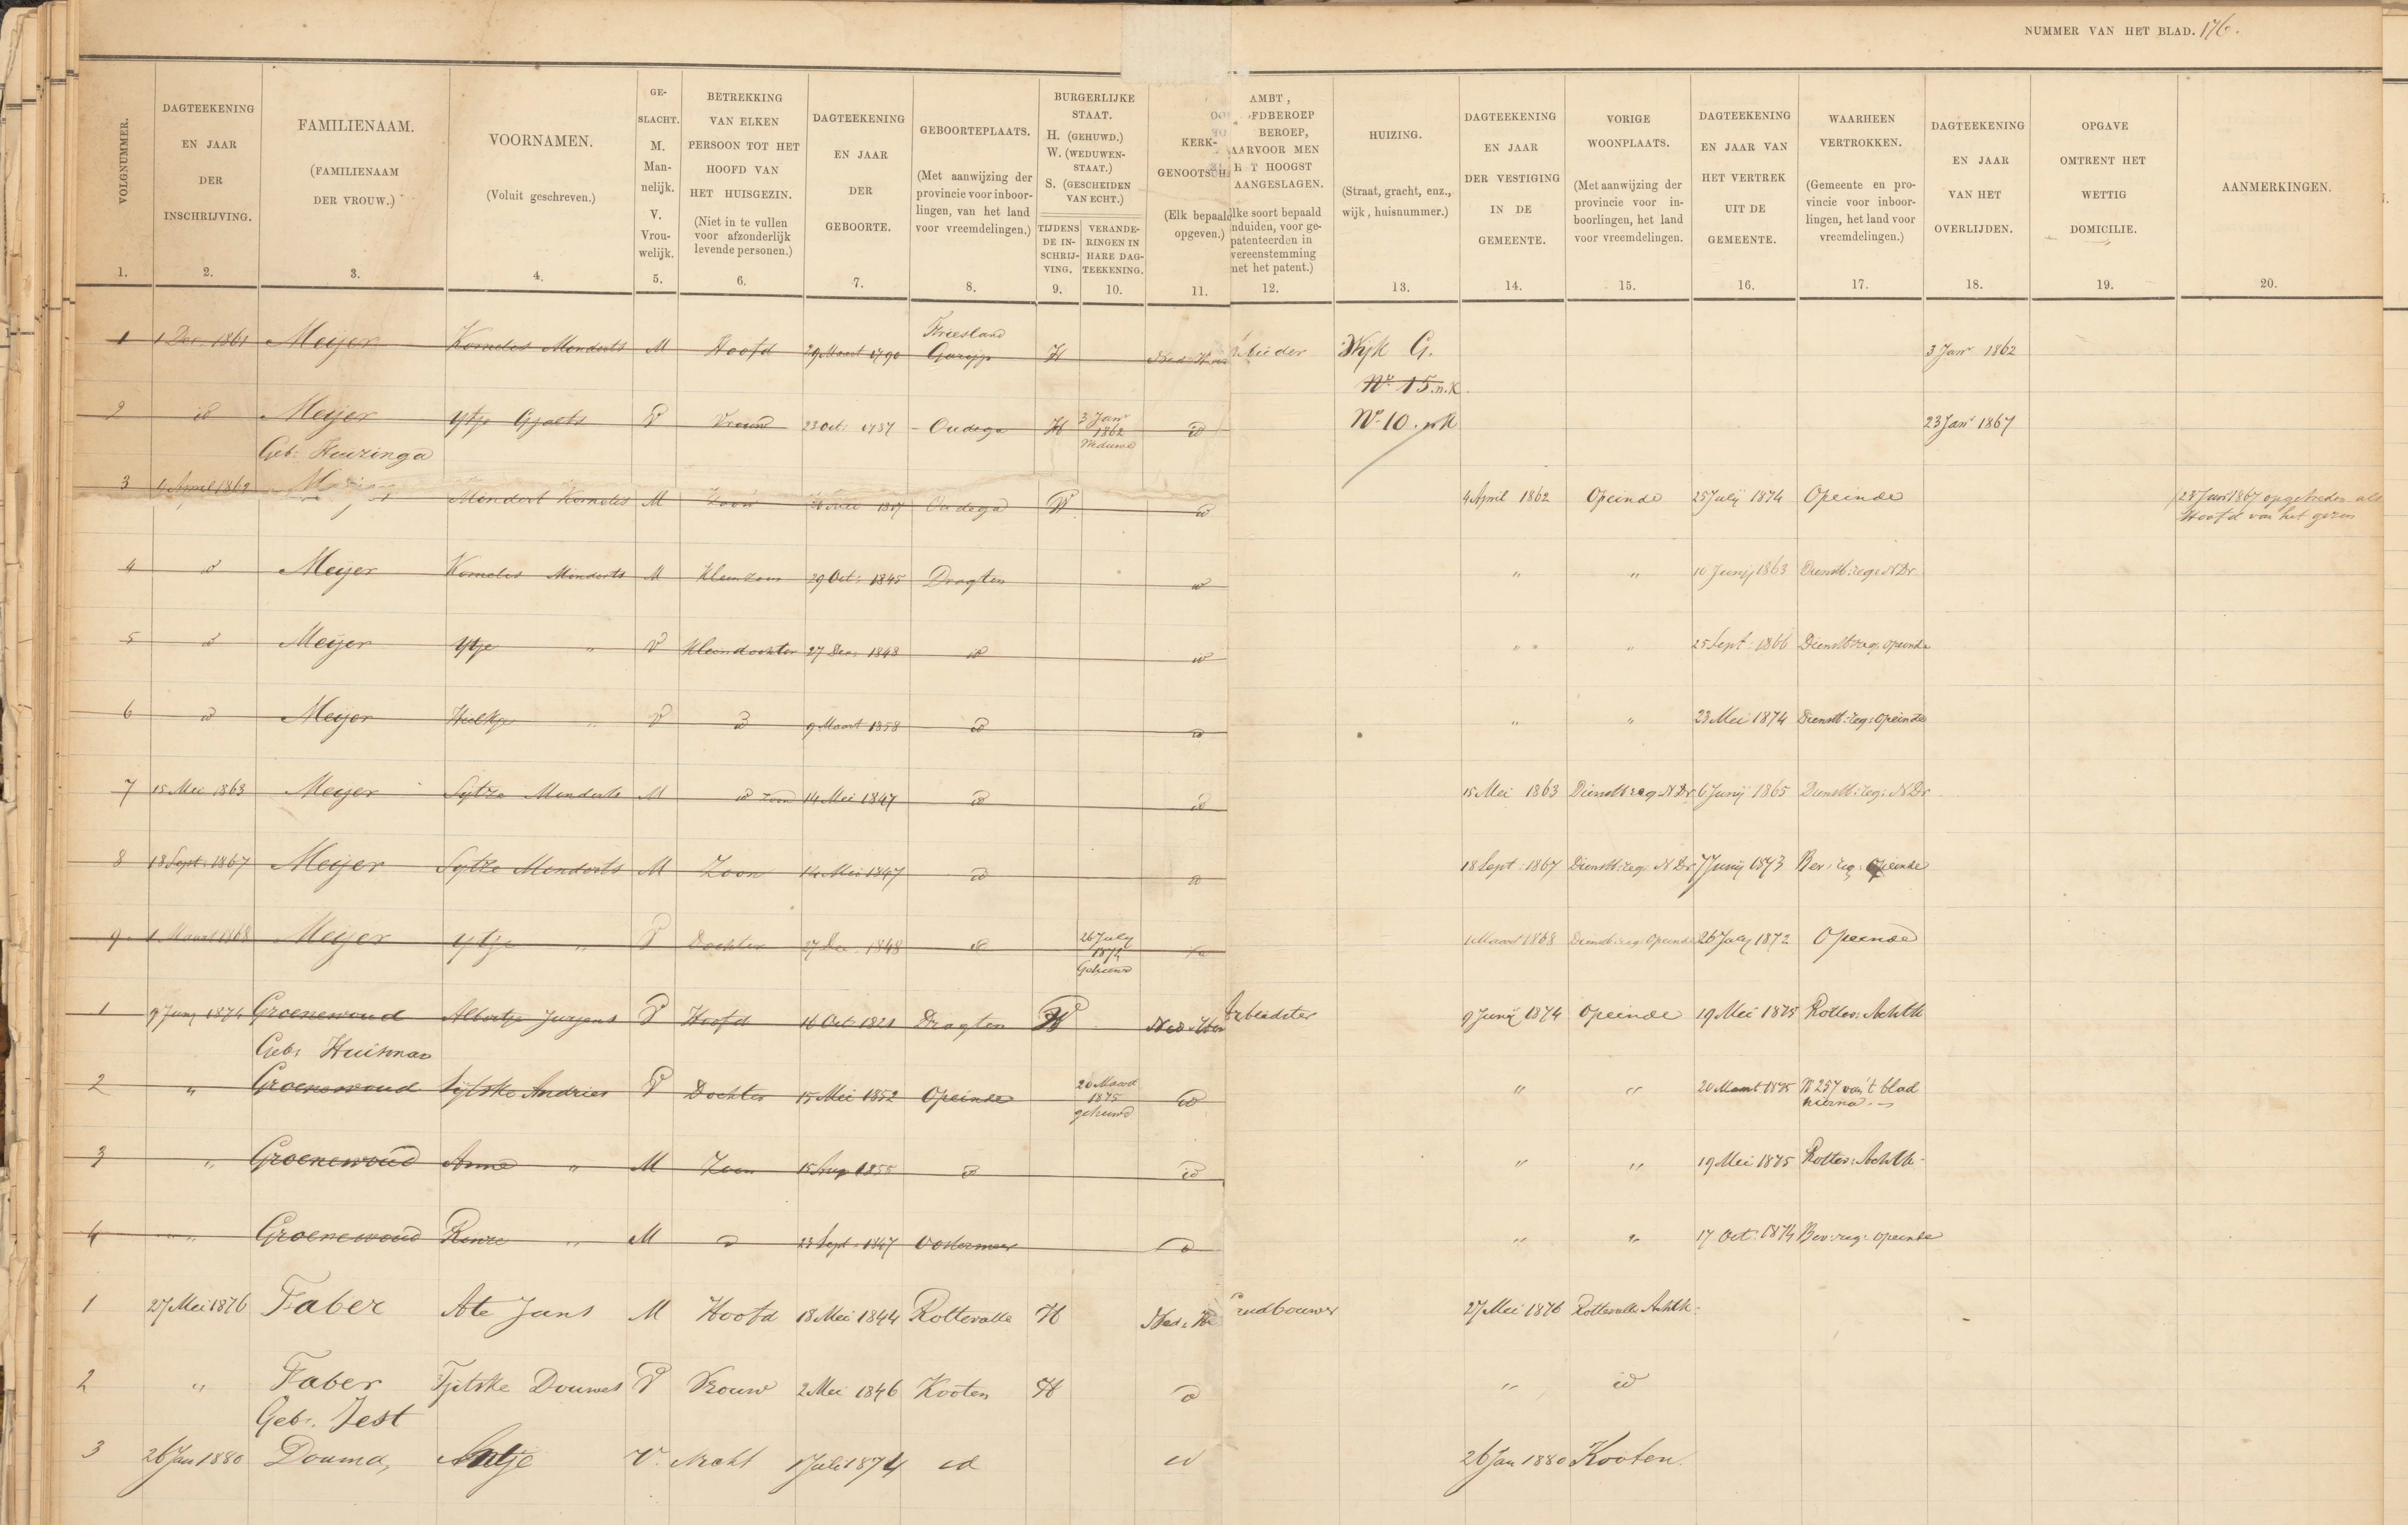 NUMMER VAN HET BLAD. 176.
VOLGNUMMER. 1.
DAGTEEKENING EN JAAR DER INSCHRIJVING. 2.
FAMILIENAAM. (FAMILIENAAM DER VROUW.) 3.
VOORNAMEN. (Voluit geschreven.) 4.
GE-SLACHT. M. Man-nelijk. V. Vrou-welijk. 5.
BETREKKING VAN ELKEN PERSOON TOT HET HOOFD VAN HET HUISGEZIN. (Niet in te vullen voor afzonderlijk levende personen.) 6.
DAGTEEKENING EN JAAR DER GEBOORTE. 7.
GEBOORTEPLAATS. (Met aanwijzing der provincie voor inboor-lingen, van het land voor vreemdelingen.) 8.
BURGERLIJKE STAAT. H. (GEHUWD.) W. (WEDUWEN-STAAT.) S. (GESCHEIDEN VAN ECHT.)
TIJDENS DE IN-SCHRIJ-VING. 9.
VERANDE-RINGEN IN HARE DAG-TEEKENING. 10.
KERK-GENOOTSCH (Elk bepaald opgeven.) 11.
AMBT, OFDBEROEP BEROEP, AARVOOR MEN HET HOOGST AANGESLAGEN. lke soort bepaald nduiden, voor ge-patenteerden in vereenstemming met het patent.) 12.
HUIZING. (Straat, gracht, enz., wijk, huisnummer.) 13.
DAGTEEKENING EN JAAR DER VESTIGING IN DE GEMEENTE. 14.
VORIGE WOONPLAATS. (Met aanwijzing der provincie voor in-boorlingen, het land voor vreemdelingen. 15.
DAGTEEKENING EN JAAR VAN HET VERTREK UIT DE GEMEENTE. 16.
WAARHEEN VERTROKKEN. (Gemeente en pro-vincie voor inboor-lingen, het land voor vreemdelingen.) 17.
DAGTEEKENING EN JAAR VAN HET OVERLIJDEN. 18.
OPGAVE OMTRENT HET WETTIG DOMICILIE. 19.
AANMERKINGEN. 20.
1 1 Dec. 1861 Meijer Kornelis Minderts M Hoofd 29 Maart 1790 Friesland Garijp H Wijk G. 3 Janr 1862
No 15. n.K.
2 id Meijer Ytje Gjalts V Vrouw 23 Oct. 1787 Oudega H 3 Janr 1862 Weduwe id No 10. nK 23 Janr 1867
Geb: Huizinga
3 4 April 1862 Mindert Kornelis M Zoon 1817 Oudega W id 4 April 1862 Opeinde 25 July 1874 Opeinde 23 Janr 1867 opgetreden als
Hoofd van het gezin
4 id Meijer Kornelis Minderts M Kleinzoon 29 Oct: 1845 Dragten id " " 10 Junij 1863 Dienstb: reg: NDr
5 id Meijer Ytje " V Kleindochter 27 Dec. 1848 id id " " 25 Sept: 1866 Dienstb reg: Opeinde
6 id Meijer Hieltje " V id 9 Maart 1858 id id " " 23 Mei 1874 Dienstb: reg: Opeinde
7 15 Mei 1863 Meijer Sytze Minderts M id zoon 14 Mei 1847 id id 15 Mei 1863 Dienstb reg NDr 6 Junij 1865 Dienstb: reg: NDr
8 18 Sept: 1867 Meijer Sytze Minderts M Zoon 14 Mei 1847 id id 18 Sept: 1867 Dienstb: reg: NDr 7 Junij 1873 Bev: reg: Opeinde
9 1 Maart 1868 Meijer Ytje " V Dochter 27 Dec. 1848 id 26 July 1872 Gehuwd id 1 Maart 1868 Dienstb: reg: Opeinde 26 July 1872 Opeinde
1 9 Junij 1874 Groenewoud Albertje Jurjens V Hoofd 16 Oct 1821 Dragten W Ned. Her Arbeidster 9 Junij 1874 Opeinde 19 Mei 1875 Rotter: Achtk
Geb: Huisman
2 " Groenewoud Sijtske Andries V Dochter 15 Mei 1852 Opeinde 20 Maart 1875 gehuwd id " " 20 Maart 1875 No 257 van 't blad
hierna.
3 " Groenewoud Anne " M Zoon 15 Aug 1855 id id " " 19 Mei 1875 Rotter: Achtk
4 " Groenewoud Renze " M id 23 Sept. 1847 Oostermeer id " " 17 Oct: 1874 Bev: reg: Opeinde
1 27 Mei 1876 Faber Ate Jans M Hoofd 18 Mei 1844 Rottevalle H Ned. He ndbouwer 27 Mei 1876 Rottevalle Achtk:
2 " Faber Tjitske Douwes V Vrouw 2 Mei 1846 Kooten H id " id
Geb. Jest
3 26 Jan 1880 Douma, Antje V. Nicht 1 Juli 1874 id id 26 Jan 1880 Kooten.